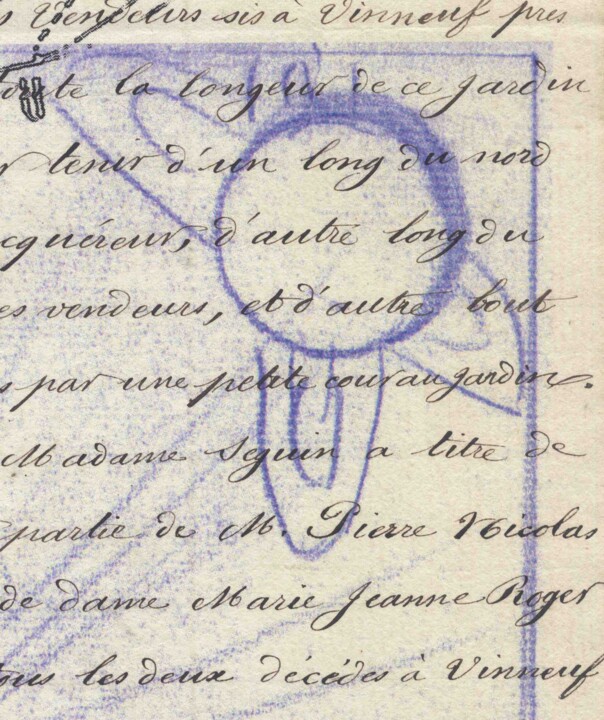 Vendeurs sis à Vinneuf près
toute la longeur de ce jardin
tenir d'un long du nord
acquéreur, d'autre long du
es vendeurs, et d'autre bout
s par une petite cour au jardin.
Madame Seguin a titre de
partie de M. Pierre Nicolas
de dame Marie Jeanne Roger
tous les deux décédés à Vinneuf